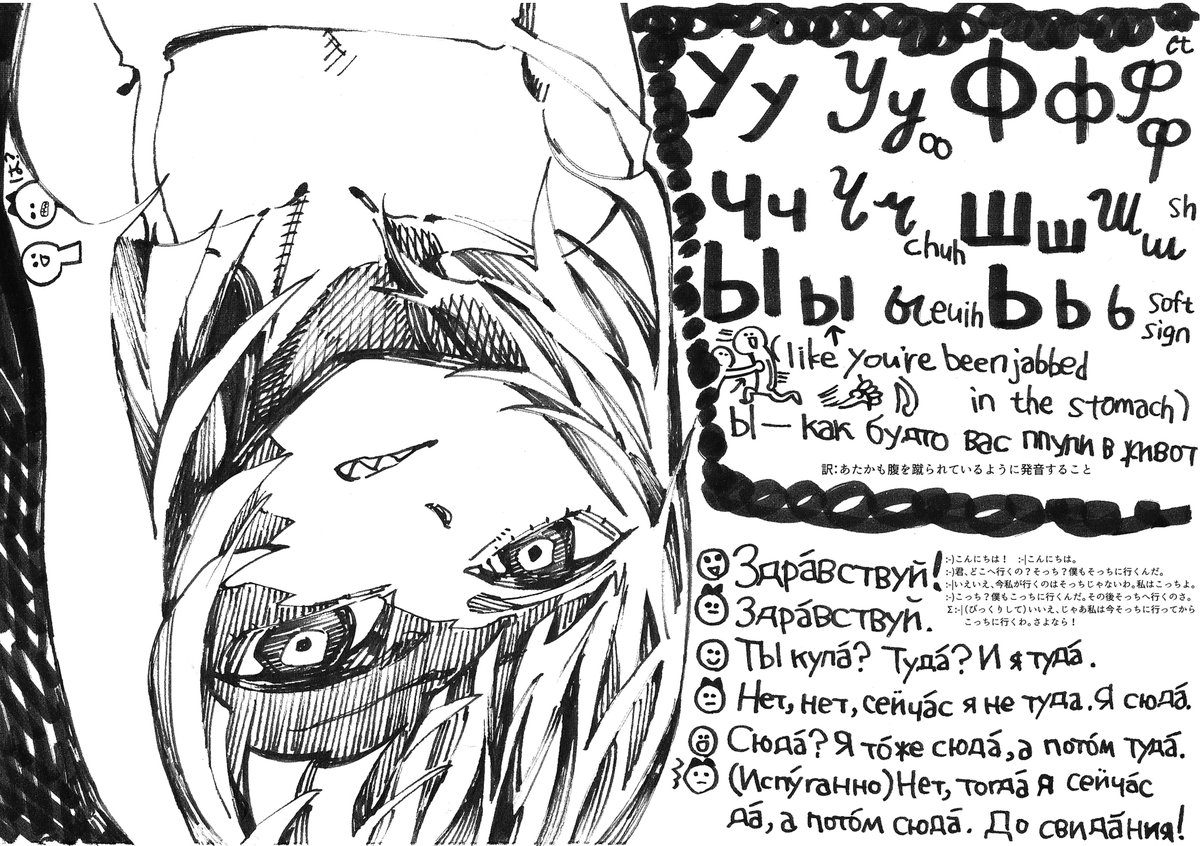 Уу Уу oo Фф Фф ct
Чч Чч chuh Шш Шш sh
Ыы ы euih Ьь ь soft sign
↑
(like you're been jabbed
in the stomach)
Ы — как будто вас ппули в живот
訳:あたかも腹を蹴られているように発音すること
は?
Здра́вствуй!
Здра́вствуй.
Ты купа́? Туда́? И я туда́.
Нет, нет, сейча́с я не туда. Я сюда́.
Сюда́? Я то́же сюда́, а пото́м туда́.
(Испу́ганно) Нет, тогда́ я сейча́с
да́, а пото́м сюда́. До свида́ния!
:-)こんにちは! :-|こんにちは。
:-)君、どこへ行くの?そっち?僕もそっちに行くんだ。
:-|いえいえ、今私が行くのはそっちじゃないわ。私はこっちよ。
:-)こっち?僕もこっちに行くんだ。その後そっちへ行くのさ。
Σ:-|(びっくりして)いいえ、じゃあ私は今そっちに行ってから
こっちに行くわ。さよなら!